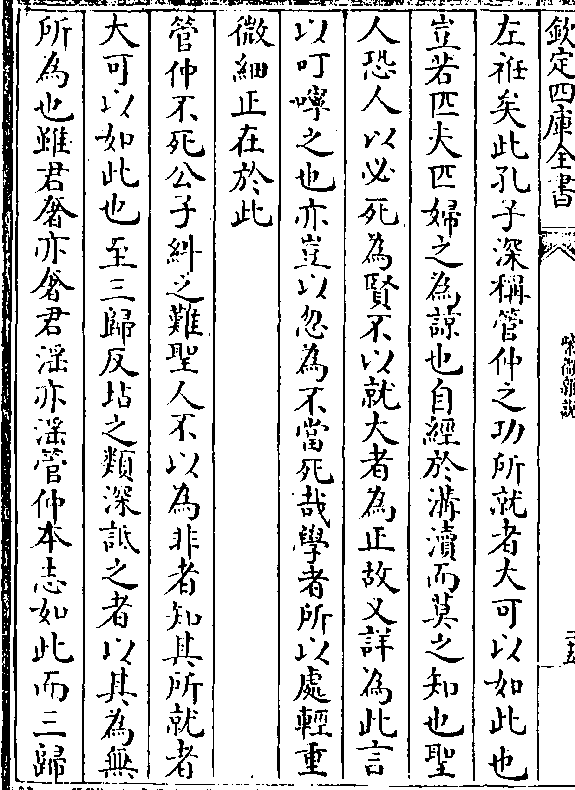 欽定四庫全書
紫微雜說
左袵矣此孔子深稱管仲之功所就者大可以如此也
豈若匹夫匹婦之為諒也自經於溝瀆而莫之知也聖
人恐人以必死為賢不以就大者為正故又詳為此言
以叮嚀之也亦豈以忽為不當死哉學者所以處輕重
微細正在於此
管仲不死公子糾之難聖人不以為非者知其所就者
大可以如此也至三歸反坫之類深詆之者以其為無
所為也雖君奢亦奢君淫亦淫管仲本志如此而三歸